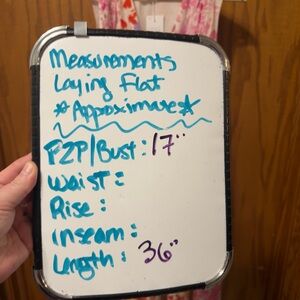 Measurements
Laying Flat
*Approximate*
P2P/Bust: 17"
Waist:
Rise:
inseam:
Length: 36"